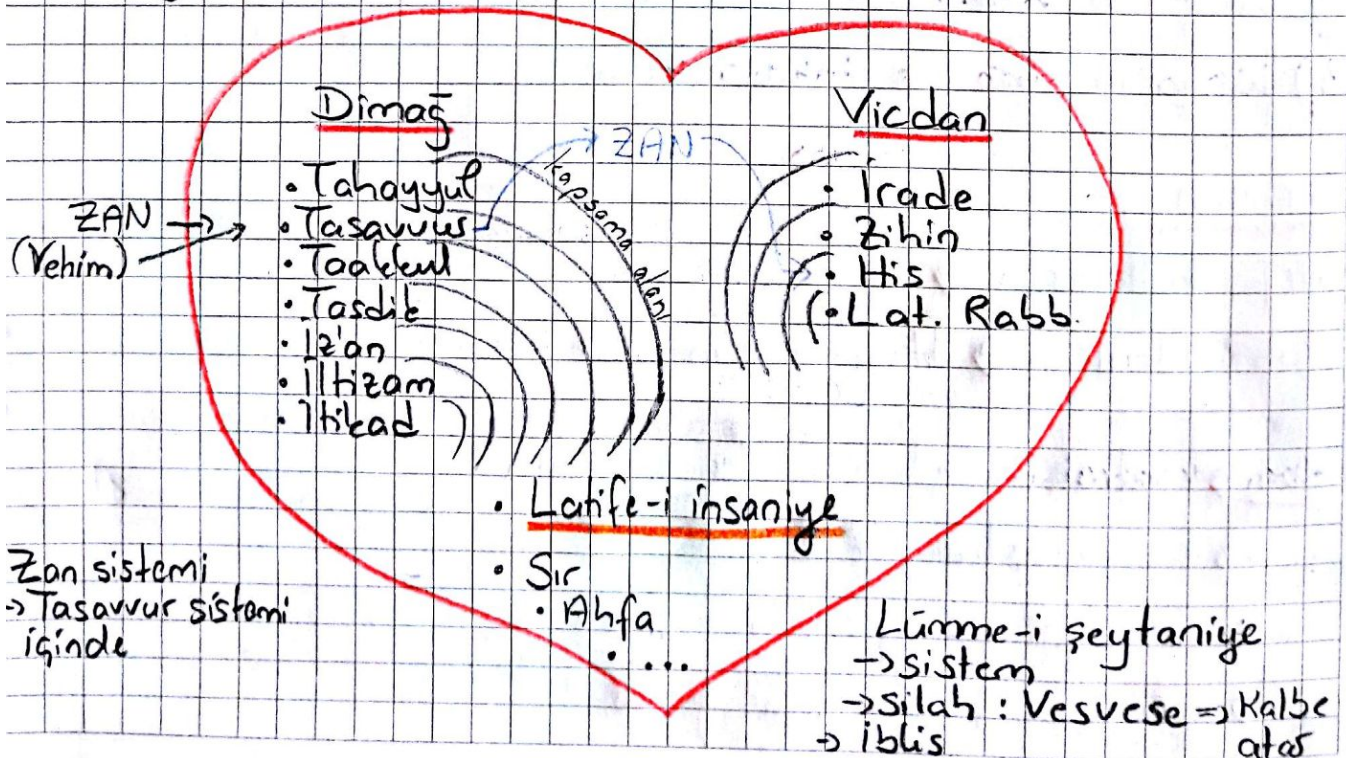 Dimağ
• Tahayyul
• Tasavvur
• Taakkul
• Tasdik
• İz'an
• İltizam
• İtikad
kapsama alanı
ZAN
ZAN →
(Vehim)
Vicdan
• İrade
• Zihin
• His
• Lat. Rabb.
• Latife-i insaniye
• Sır
• Ahfa
• ...
Zan sistemi
→ Tasavvur sistemi
içinde
Lümme-i şeytaniye
→ sistem
→ silah : Vesvese => Kalbe
atar
→ iblis